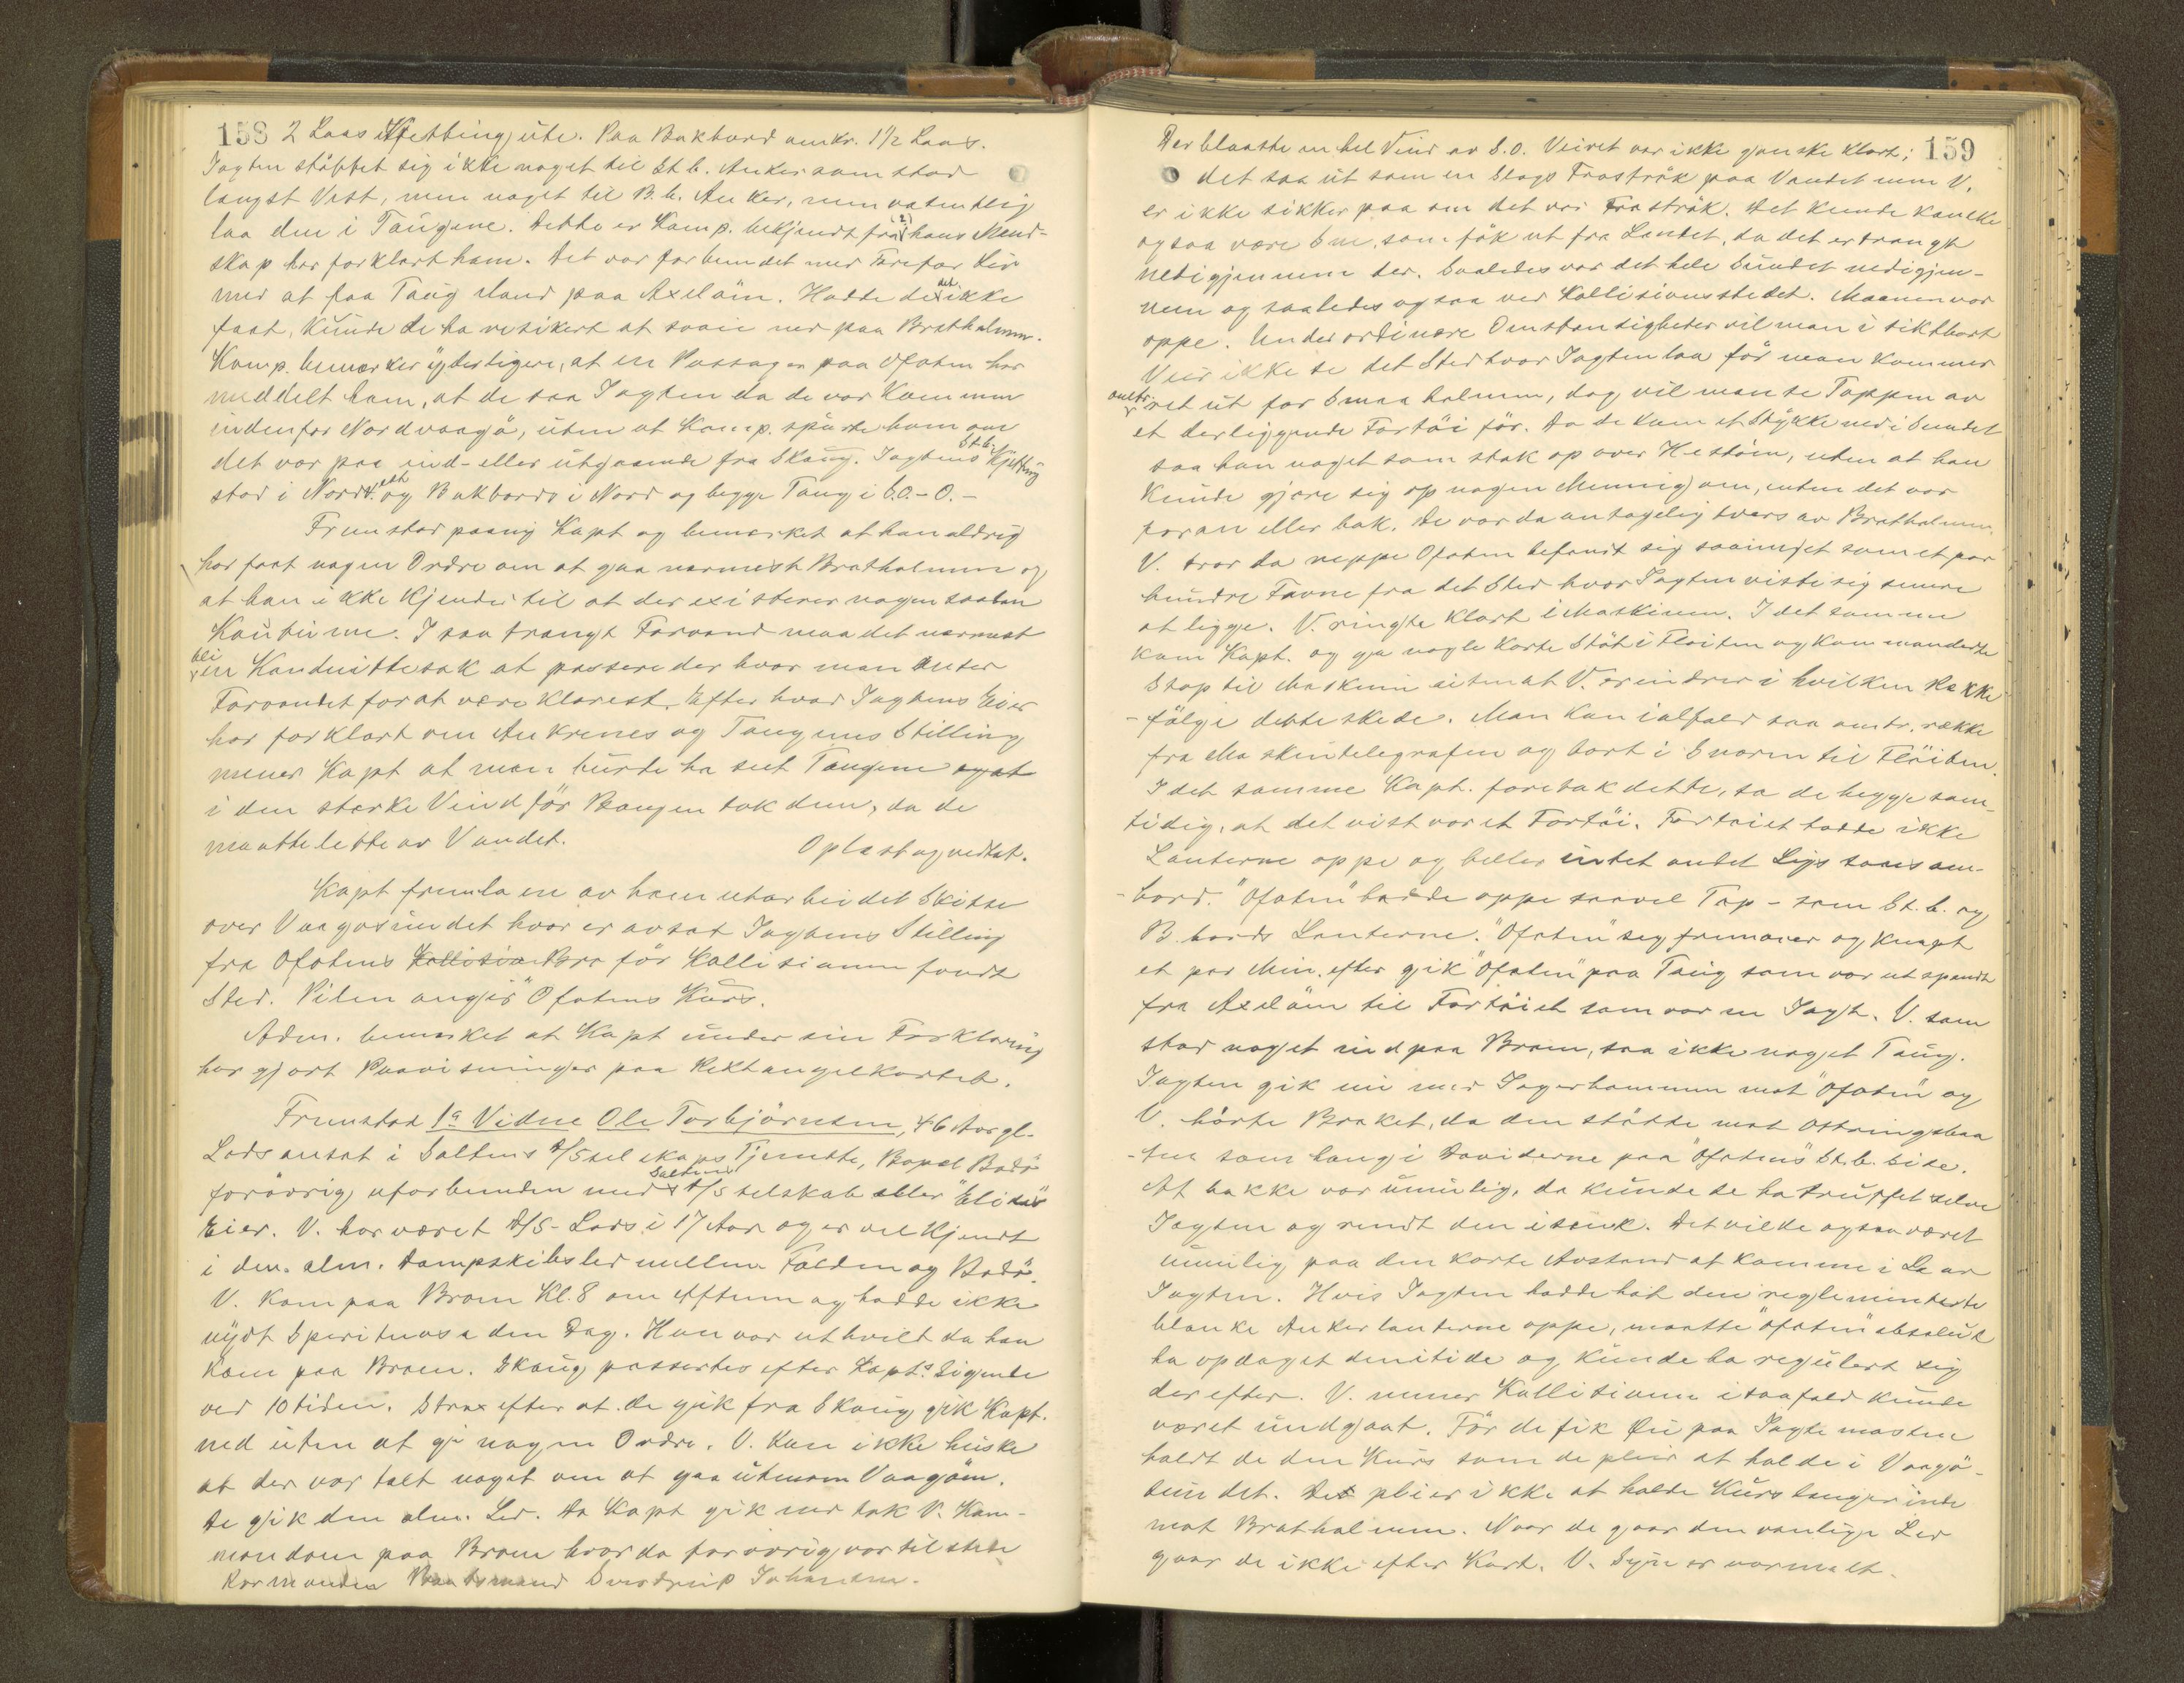 158 2 Laas Kjetting ute. Paa Bakbord omkr. 1 1/2 Laas.
Jagten støttet sig ikke noget til St.b. Anker som stod
længst Vest, men noget til B.b. Anker, men væsentlig
laa den i Taugene. Dette er Komp. bekjendt fra hans Mand-
skap har forklart ham. Det var forbundet med Fare for Liv
med at faa Taug iland paa Axeløin. Hadde de det ikke
faat, kunde de ha resikert at svaie ned paa Bratholmen.
Komp. bemærker yderligere, at en Passager paa Ofoten har
meddelt ham, at de saa Jagten da de var kommen
indenfor Nordvaagø, uten at Komp. spurte ham om
det var paa ind- eller utgaaende fra Skaug. Jagtens St.b. Kjetting
stod i Nordvest og Bakbords i Nord og begge Taug i S.O.-O.-
Fremstod paany Kapt og bemærket at han aldrig
har faat nogen Ordre om at gaa nærmest Bratholmen og
at han ikke kjender til at der existerer nogen saadan
Koutume. I saa trangt Farvand maa det nærmest
bli en Konduittesak at passere der hvor man anser
Farvandet for at være klarest. Efter hvad Jagtens Eier
har forklart om Ankrenes og Taugenes Stilling
mener Kapt at man burde ha seet Taugene og at
i den stærke Vind før Baugen tok dem, da de
maatte lette av Vandet. Oplæst og vedtat.
Kapt fremla en av ham utarbeidet Skitse
over Vaagøsundet hvor er avsat Jagtens Stilling
fra Ofotens Kollision Bro før Kollisionen fandt
Sted. Pilen angir "Ofotens Kurs.
Adm. bemærket at Kapt under sin Forklaring
har gjort Paavisninger paa Rektangelkartet.
Fremstod 1ª Vidne Ole Torbjørnsen, 46 Aar gl.
Lods ansat i Saltens D/Sselskaps Tjeneste, Bopæl Bodø
forøvrig uforbunden med Saltens D/S selskab eller "Elidas"
Eier. V. har været D/S-Lods i 17 Aar og er vel kjendt
i den alm. Dampskibsled mellem Folden og Bodø.
V. kom paa Broen Kl. 8 om Aftenen og hadde ikke
nydt Spirituosa den Dag. Han var uthvilt da han
kom paa Broen. Skaug passertes efter Kapts. Sigende
ved 10 tiden. Strax efter at de gik fra Skaug gik Kapt.
ned uten at gi nogen Ordre. V. kan ikke huske
at der var talt noget om at gaa utenom Vaagøen.
De gik den alm. Led. Da Kapt gik ned tok V. Kom-
mandoen paa Broen hvor da forøvrig var tilstede
Rormanden Baadsmand Sverdrup Johansen.
159
Der blaaste en hel Vind av S.O. Veiret var ikke ganske klart;
det saa ut som en Slags Frostrøk paa Vandet men V.
er ikke sikker paa om det var Frostrøk. Det kunde kanske
ogsaa være Sne, som føk ut fra Landet, da det er trangt
nedigjennem der. Saaledes var det hele Sundet nedigjen-
nem og saaledes ogsaa ved Kollisionsstedet. Maanen var
oppe. Under ordinære Omstændigheter vil man i siktbart
Veir ikke se det Sted hvor Jagten laa før man kommer
omtr. ret ut for Smaaholmene, dog vil man se Toppen av
et derliggende Fartøi før. Da de kom et Stykke ned i Sundet
saa han noget som stak op over Hestøin, uten at han
kunde gjøre sig op nogen Mening om, enten det var
foran eller bak. De var da antagelig tvers av Bratholmen.
V. tror da neppe Ofoten befandt sig saa meget som et par
hundre Favne fra det Sted hvor Jagten viste sig senere
at ligge. V. ringte klart i Maskinen. I det samme
kom Kapt. og ga nogle korte Støt i Fløiten og kommanderte
Stop til Maskinen uten at V. erindrer i hvilken Rekke
-følge dette skede. Man kan ialfald saa omtr. række
fra Maskintelegrafen og bort i Snoren til Fløiten.
I det samme Kapt. foretok dette, sa de begge sam-
tidig, at det vist var et Fartøi. Fartøiet hadde ikke
Lanterne oppe og heller intet andet Lys saaes om-
-bord. "Ofoten" hadde oppe saavel Top- som St.b. og
B.bords Lanterne. "Ofoten" seg fremover og knapt
et par Min. efter gik "Ofoten" paa Taug som var utspændt
fra Axeløin til Fartøiet som var en Jagt. V. som
stod noget ind paa Broen, saa ikke noget Taug.
Jagten gik nu med Lagerbommen mot "Ofoten" og
V. hørte Braket, da den støtte mot Ottringsbaa
-ten som hang i Daviderne paa "Ofotens" St.b. side.
At bakke var umulig, da kunde de ha truffet selve
Jagten og rendt den i senk. Det vilde ogsaa været
umulig paa den korte Avstand at komme i Le av
Jagten. Hvis Jagten hadde hat den reglementerte
blanke Ankerlanterne oppe, maatte "Ofoten" absolut
ha opdaget den itide og kunde ha regulert sig
derefter. V. mener Kollisionen isaafald kunde
været undgaat. Før de fik Øie paa Jagtemasten
holdt de den Kurs som de pleier at holde i Vaagø-
sundet. De pleier ikke at holde Kurs længer inde
mot Bratholmen. Naar de gaar den vanlige Led
gaar de ikke efter Kart. V. Syn er normalt.